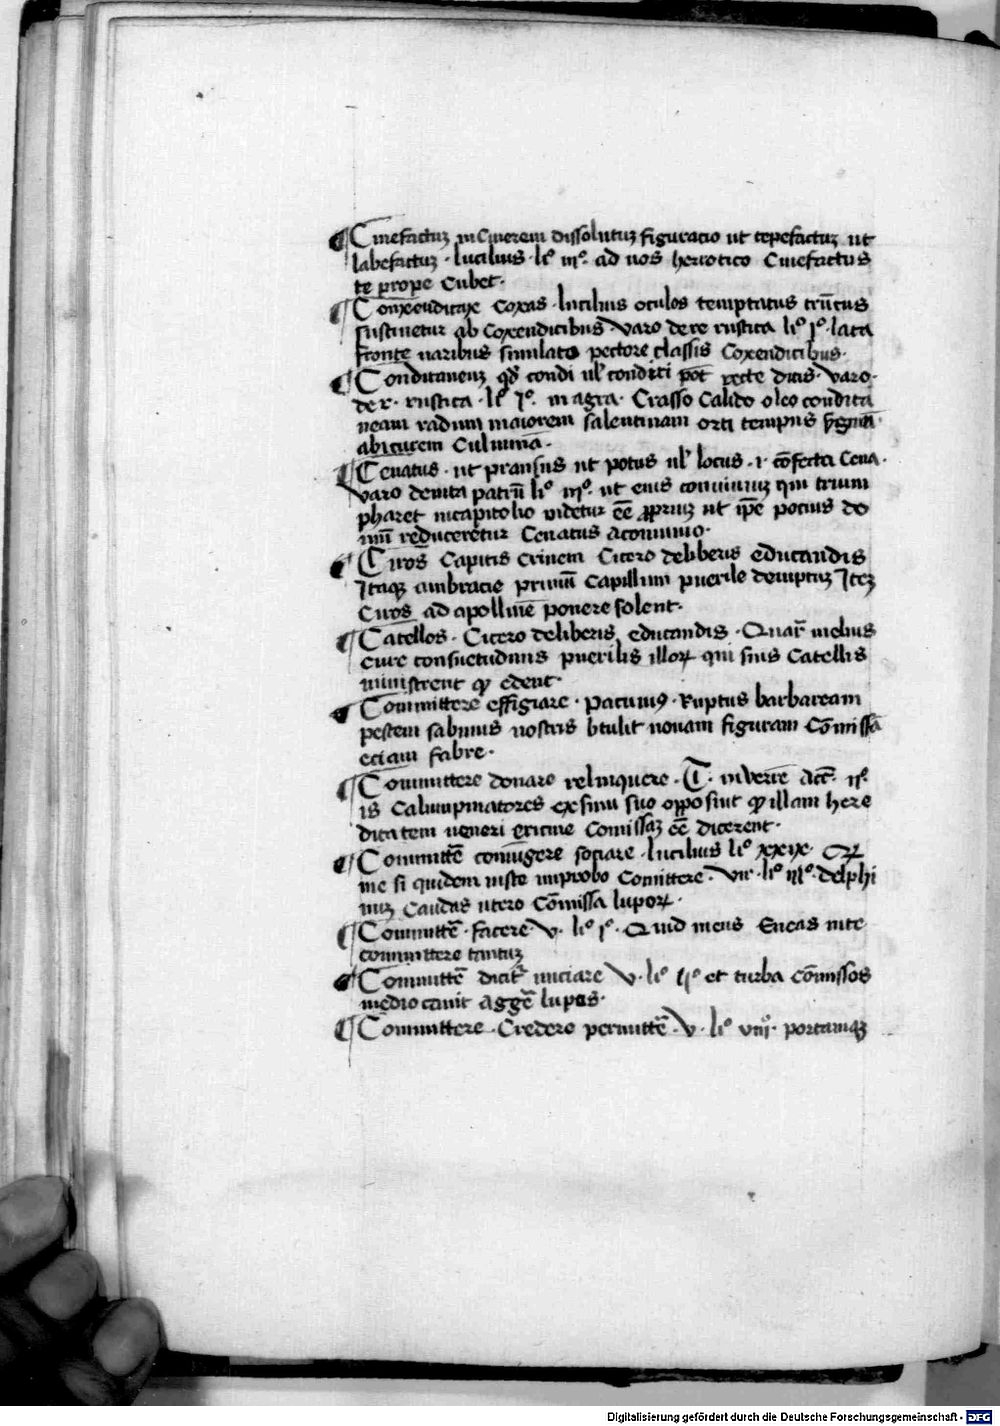 ¶ Cinefactuꝫ in Cinerem dissolutuꝫ figuracio ut tepefactuꝫ ut
labefactuꝫ · lucilius · liº iiiº · ad uos herootico Cinefactus
te prope Cubet ·
¶ Conxenditaxe Coxas · lucilius oculos temptatus trūcus
sustinetur ab Coxendicibus varo de re rustica liº iº · lata
fronte naribus similatꝫ pectore classis Coxendicibus ·
¶ Conditaneuꝫ qđ condi ul' conditi pōt recte dicis · varo ·
de r · rustica · liº iº · in agra · Crasso Calido oleo condita
neam radium maiorem salentinam orti tempus
abicurem Culminā ·
¶ Cenatus · ut pransus ut potus ul' locus · i · cōfecta Cena ·
varo de uita patrū liº iiiº · ut eius conuiuiuꝫ qui trium
pharet in capitolio uidetur eē ꝓpriuꝫ ut ipe pocius do
mū reduceretur Cenatus a conuiuio ·
¶ Ciros Capitis Crinem Cicero de liberis educandis
Itaqꝫ ambracie primū Capillum puerile demptuꝫ Iteꝫ
Ciros ad apollinē ponere solent ·
¶ Catellos · Cicero de liberis educandis · Quar̄ melius
cure consuetudinis puerilis illoꝝ qui suis Catellis
ministrent qꝫ edent ·
¶ Committere effigiare · pacuuiꝰ · Ruptus barbaream
pestem sabinus nostris btulit nouam figuram Cōmissā
eciam fabre ·
¶ Committere donare relinquere · T · in verrē Act̄ · iiº
is Calumpniatores ex sinu suo opposiut qꝫ illam here
ditatem ueneri ericine Comissaꝫ eē dicerent ·
¶ Committē coniūgere sociare · lucilius liº xxix · Qꝝ
me si quidem iniste improbo Comittere · vir · liº iiiº · delphi
nuꝫ Caudas utero Cōmissa lupoꝝ ·
¶ Committē · facere · v · liº iº · Quid meus Eneas in te
committere tantuꝫ
¶ Committē dicit̄ nnciare v · liº iiº et turba cōmissos
medio canit aggē lupos ·
¶ Committere · Credere permittē · v · liº viiiº · portamqꝫ
Digitalisierung gefördert durch die Deutsche Forschungsgemeinschaft - DFG